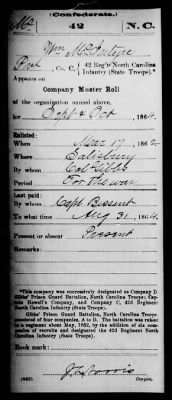 (Confederate.)
Mc 42 N.C.
Wm McIntyre
Pvt, Co. C, 42 Reg't North Carolina
Infantry (State Troops).*
Appears on
Company Muster Roll
of the organization named above,
for Sept & Oct, 1864.
Enlisted:
When Mar 17, 1862
Where Salisbury
By whom Col Gibbs
Period For the war
Last paid:
By whom Capt
To what time Aug 31, 1864.
Present or absent Present
Remarks:
*This company was successively designated as Company D
Gibbs' Prison Guard Battalion, North Carolina Troops; Captain
Howell's Company, and Company C, 42d Regiment
North Carolina Infantry (State Troops).
Gibbs' Prison Guard Battalion, North Carolina Troops,
consisted of four companies, A to D. The battalion was raised
to a regiment about May, 1862, by the addition of six companies
of recruits and designated the 42d Regiment North
Carolina Infantry (State Troops).
Book mark:
(642)
Copyist.